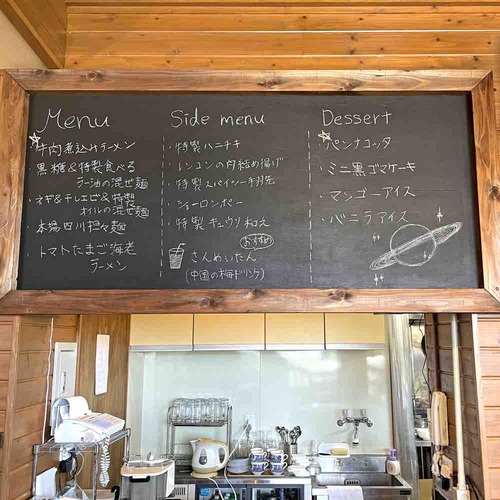 Menu
牛肉煮込みラーメン
黒糖&特製食べる
ラー油の混ぜ麺
ネギ&干しエビ&特製
オイルの混ぜ麺
本場四川担々麺
トマトたまご海老
ラーメン
Side menu
・特製ハニチキ
・レンコンの肉詰め揚げ
・特製スパイシー手羽先
・ショーロンポー
・特製キュウリ和え
おすすめ
さんめいたん
(中国の梅ドリンク)
Dessert
パンナコッタ
・ミニ黒ゴマケーキ
・マンゴーアイス
・バニラアイス